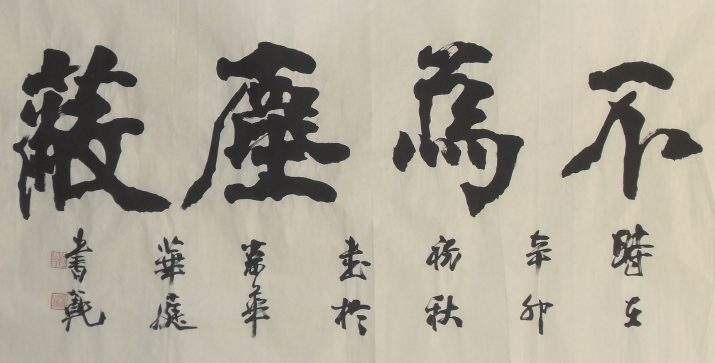 不為塵蔽
時在
辛卯
初秋
書於
華
華庭
書